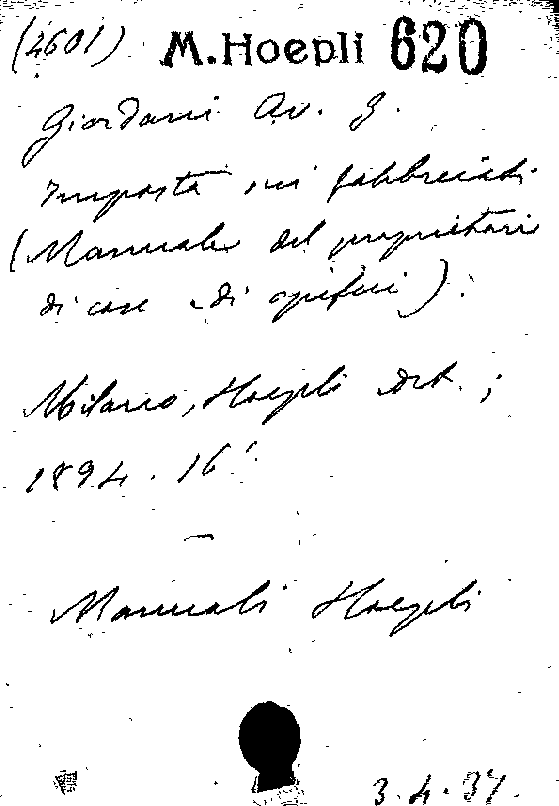 (2601) M. Hoepli 620
Giordani Av. G.
Imposta sui fabbricati
(Manuale del proprietario
di case e di opifici).
Milano, Hoepli Edit. ;
1894. 16°.
—
Manuali Hoepli
3.4.37.